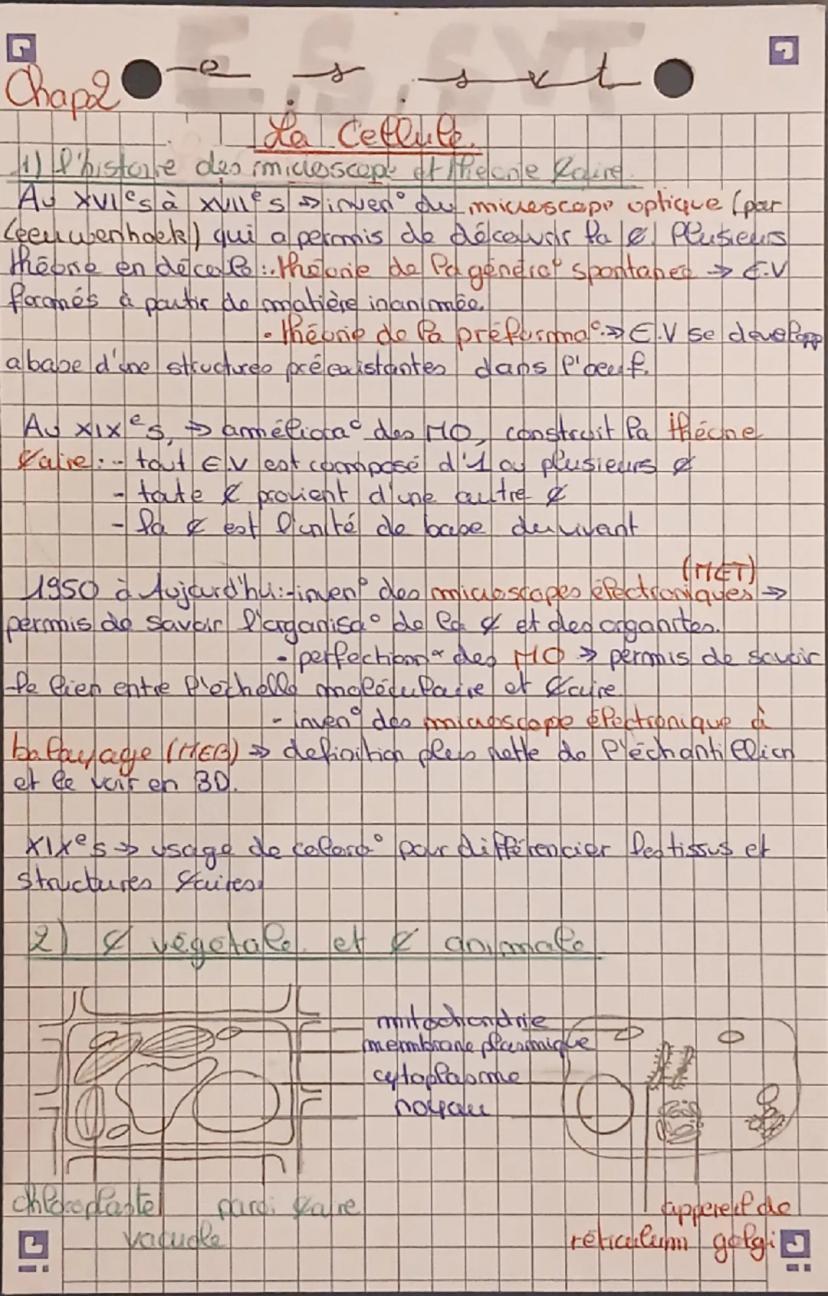 e s s v t
Chap2
La Cellule.
1) l'histoire des microscope et théorie ₵aire.
Au XVIe s à XVIIe s ⇒ inven° du microscope optique (par
Leeuwenhoek) qui a permis de découvrir la ₵. Plusieurs
théorie en découle : . théorie de la généra° spontanée → E.V
formés à partir de matière inanimée.
. théorie de la préforma° ⇒ E.V se developp
a base d'une structures préexistantes dans l'oeuf.
Au XIXe s, ⇒ améliora° des MO, construit la théorie
₵aire : - tout E.V est composé d'1 ou plusieurs ₵
- toute ₵ provient d'une autre ₵
- la ₵ est l'unité de base du vivant
(MET)
1950 à Aujourd'hui : - inven° des microscopes électroniques ⇒
permis de savoir l'organisa° de la ₵ et des organites.
- perfection° des MO ⇒ permis de savoir
le lien entre l'échelle moléculaire et ₵aire
- inven° des microscope électronique à
balayage (MEB) ⇒ definition plus nette de l'échantillion
et le voir en 3D.
XIXe s ⇒ usage de colora° pour différencier les tissus et
structures ₵aires.
2) ₵ végétale et ₵ animale
mitochondrie
membrane plasmique
cytoplasme
noyau
chloroplaste paroi ₵aire
vacuole
appareil de
réticulum golgi